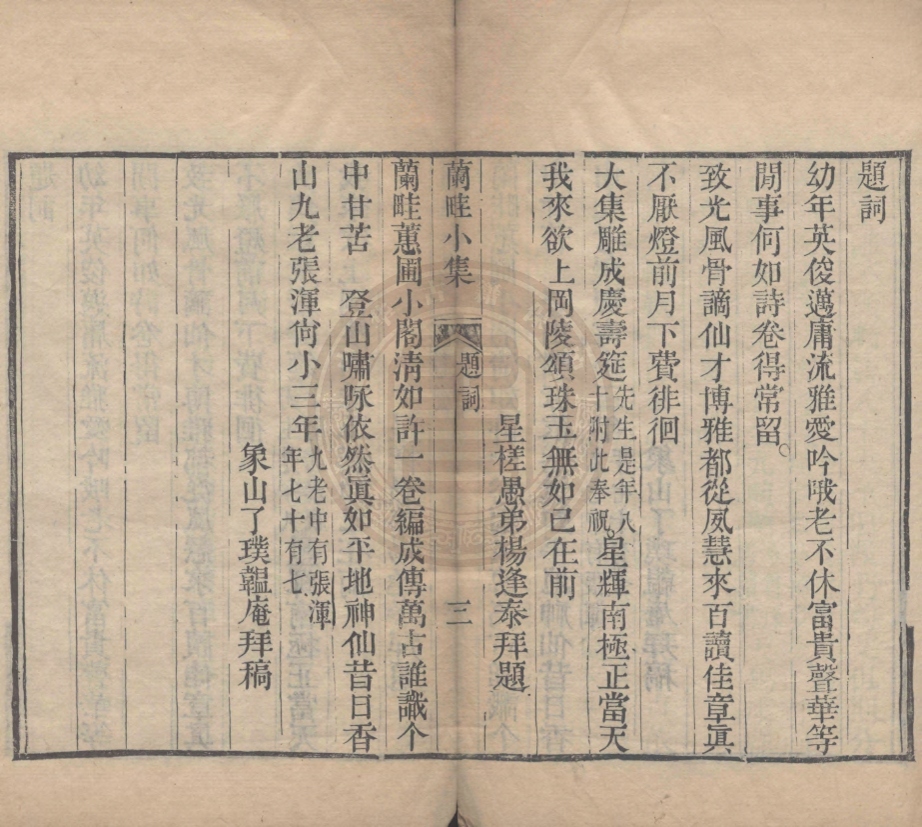 題詞
幼年英俊邁庸流雅愛吟哦老不休富貴聲華等
閒事何如詩卷得常留
致光風骨謫仙才博雅都從夙慧來百讀佳章眞
不厭燈前月下費徘徊
大集雕成慶壽筵先生是年八十附此奉祝星輝南極正當天
我來欲上岡陵頌珠玉無如已在前
星槎愚弟楊逢泰拜題
蘭畦小集 題詞 三
蘭畦蕙圃小閣清如許一卷編成傳萬古誰識个
中甘苦 登山嘯咏依然眞如平地神仙昔日香
山九老張渾尙小三年九老中有張渾年七十有七
象山了璞韞庵拜稿